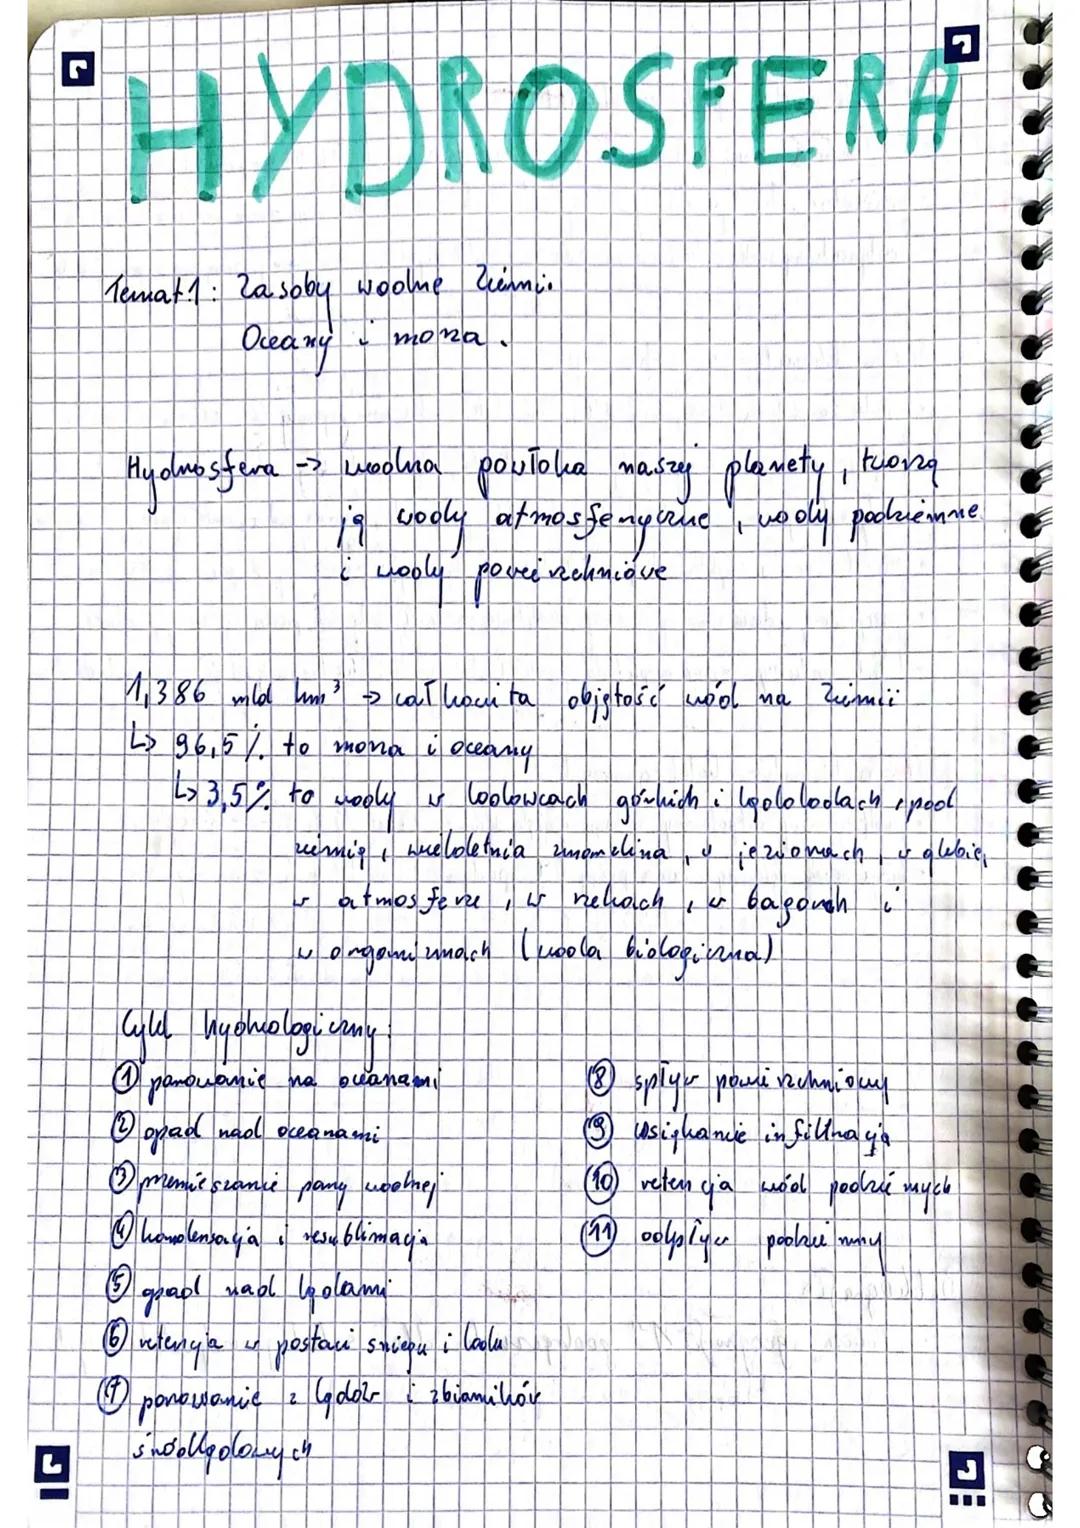 HYDROSFERA
Temat 1: Zasoby wodne Ziemi.
Oceany i morza.
Hydrosfera -> wodna powłoka naszej planety, tworzą
ją wody atmosferyczne, wody podziemne
i wody powierzchniowe
1,386 mld km³ -> całkowita objętość wód na Ziemii
↳ 96,5% to morza i oceany
↳ 3,5% to wody w lodowcach górskich i lądolodach, pod
ziemią, wieloletnia zmarzlina, w jeziorach, w glebie,
w atmosferze, w rzekach, w bagnach i
w organizmach (woda biologiczna)
Cykl hydrologiczny:
① parowanie na oceanami
② opad nad oceanami
③ przemieszczanie pary wodnej
④ kondensacja i resublimacja
⑤ opad nad lądami
⑥ retencja w postaci śniegu i lodu
⑦ parowanie z lądów i zbiorników
śródlądowych
⑧ spływ powierzchniowy
⑨ wsiąkanie infiltracja
⑩ retencja wód podziemnych
⑪ odpływ podziemny